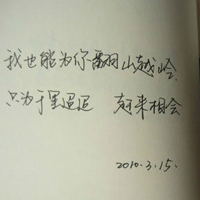 我也能为你翻山越岭
只为千里迢迢 赶来相会
2010.3.15.